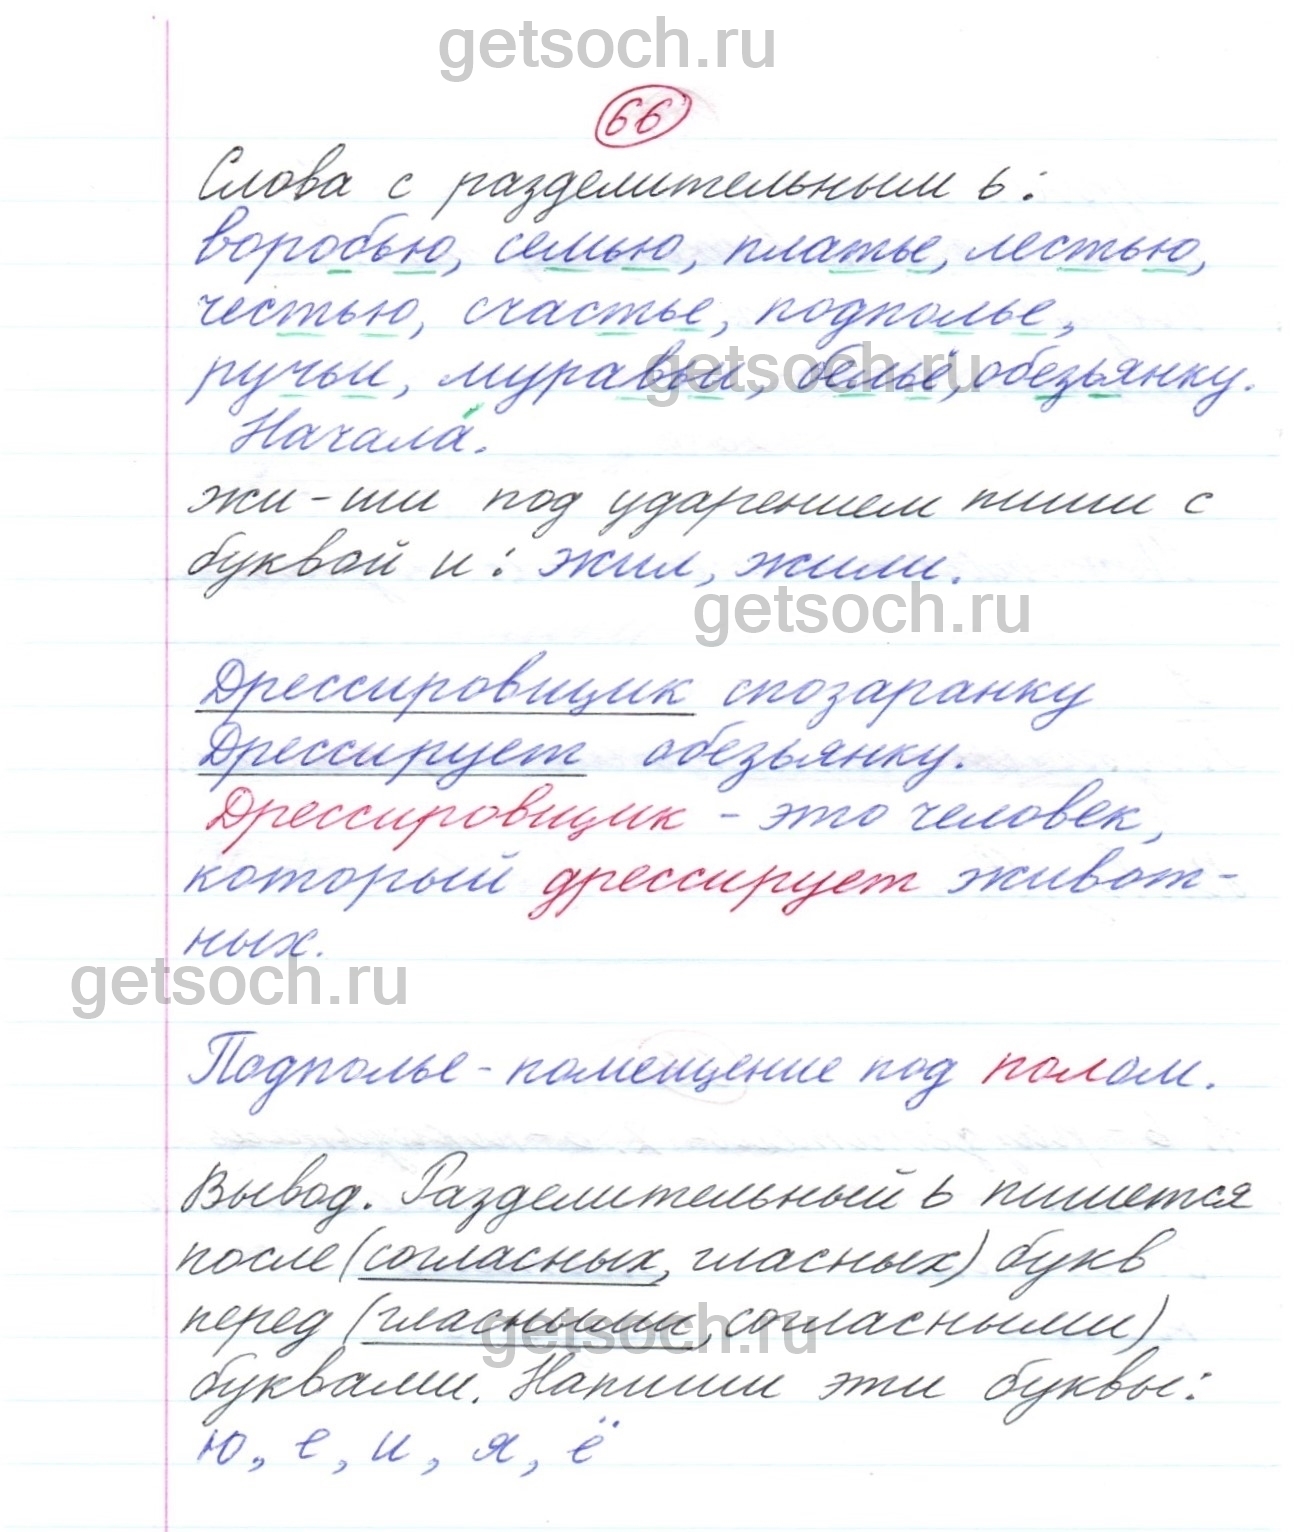 getsoch.ru
66
Слова с разделительным ь:
воробью, семью, платье, лестью,
честью, счастье, подполье,
getsoch.ru
ручьи, муравьи, бельё, обезьянку.
Начала́.
жи-ши под ударением пиши с
буквой и: жил, жили.
getsoch.ru
Дрессировщик спозаранку
Дрессирует обезьянку.
Дрессировщик - это человек,
который дрессирует живот-
ных.
getsoch.ru
Подполье - помещение под полом.
Вывод. Разделительный ь пишется
после (согласных, гласных) букв
перед (гласными, согласными)
getsoch.ru
буквами. Напиши эти буквы:
ю, е, и, я, ё